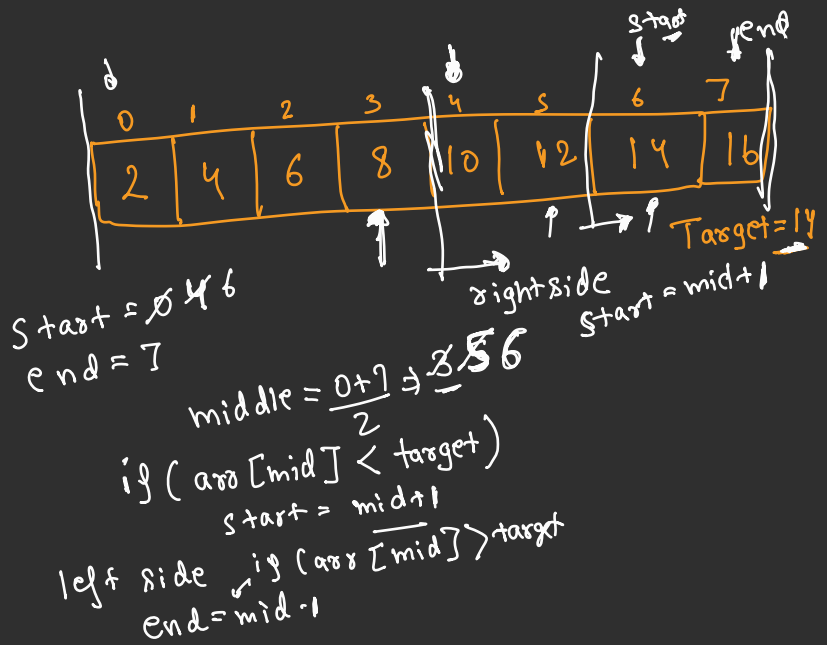 start end
0 1 2 3 4 5 6 7
2 4 6 8 10 12 14 16
Target = 14
right side
start = mid+1
start = 0 4 6
end = 7
middle = 0+7/2 ⇒ 3 5 6
if (arr [mid] < target)
start = mid+1
left side if (arr [mid] > target
end = mid-1